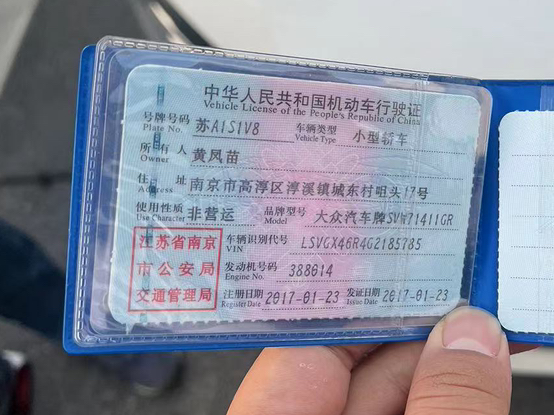 中华人民共和国机动车行驶证
Vehicle License of the People's Republic of China
号牌号码 苏A1S1V8 车辆类型 小型轿车
Plate No. Vehicle Type
所有人 黄凤苗
Owner
住址 南京市高淳区淳溪镇城东村咀头17号
Address
使用性质 非营运 品牌型号 大众汽车牌SVW71411GR
Use Character Model
江苏省南京 车辆识别代号 LSVGX46R4G2185785
VIN
市公安局 发动机号码 388614
Engine No.
交通管理局 注册日期 2017-01-23 发证日期 2017-01-23
Register Date Issue Date